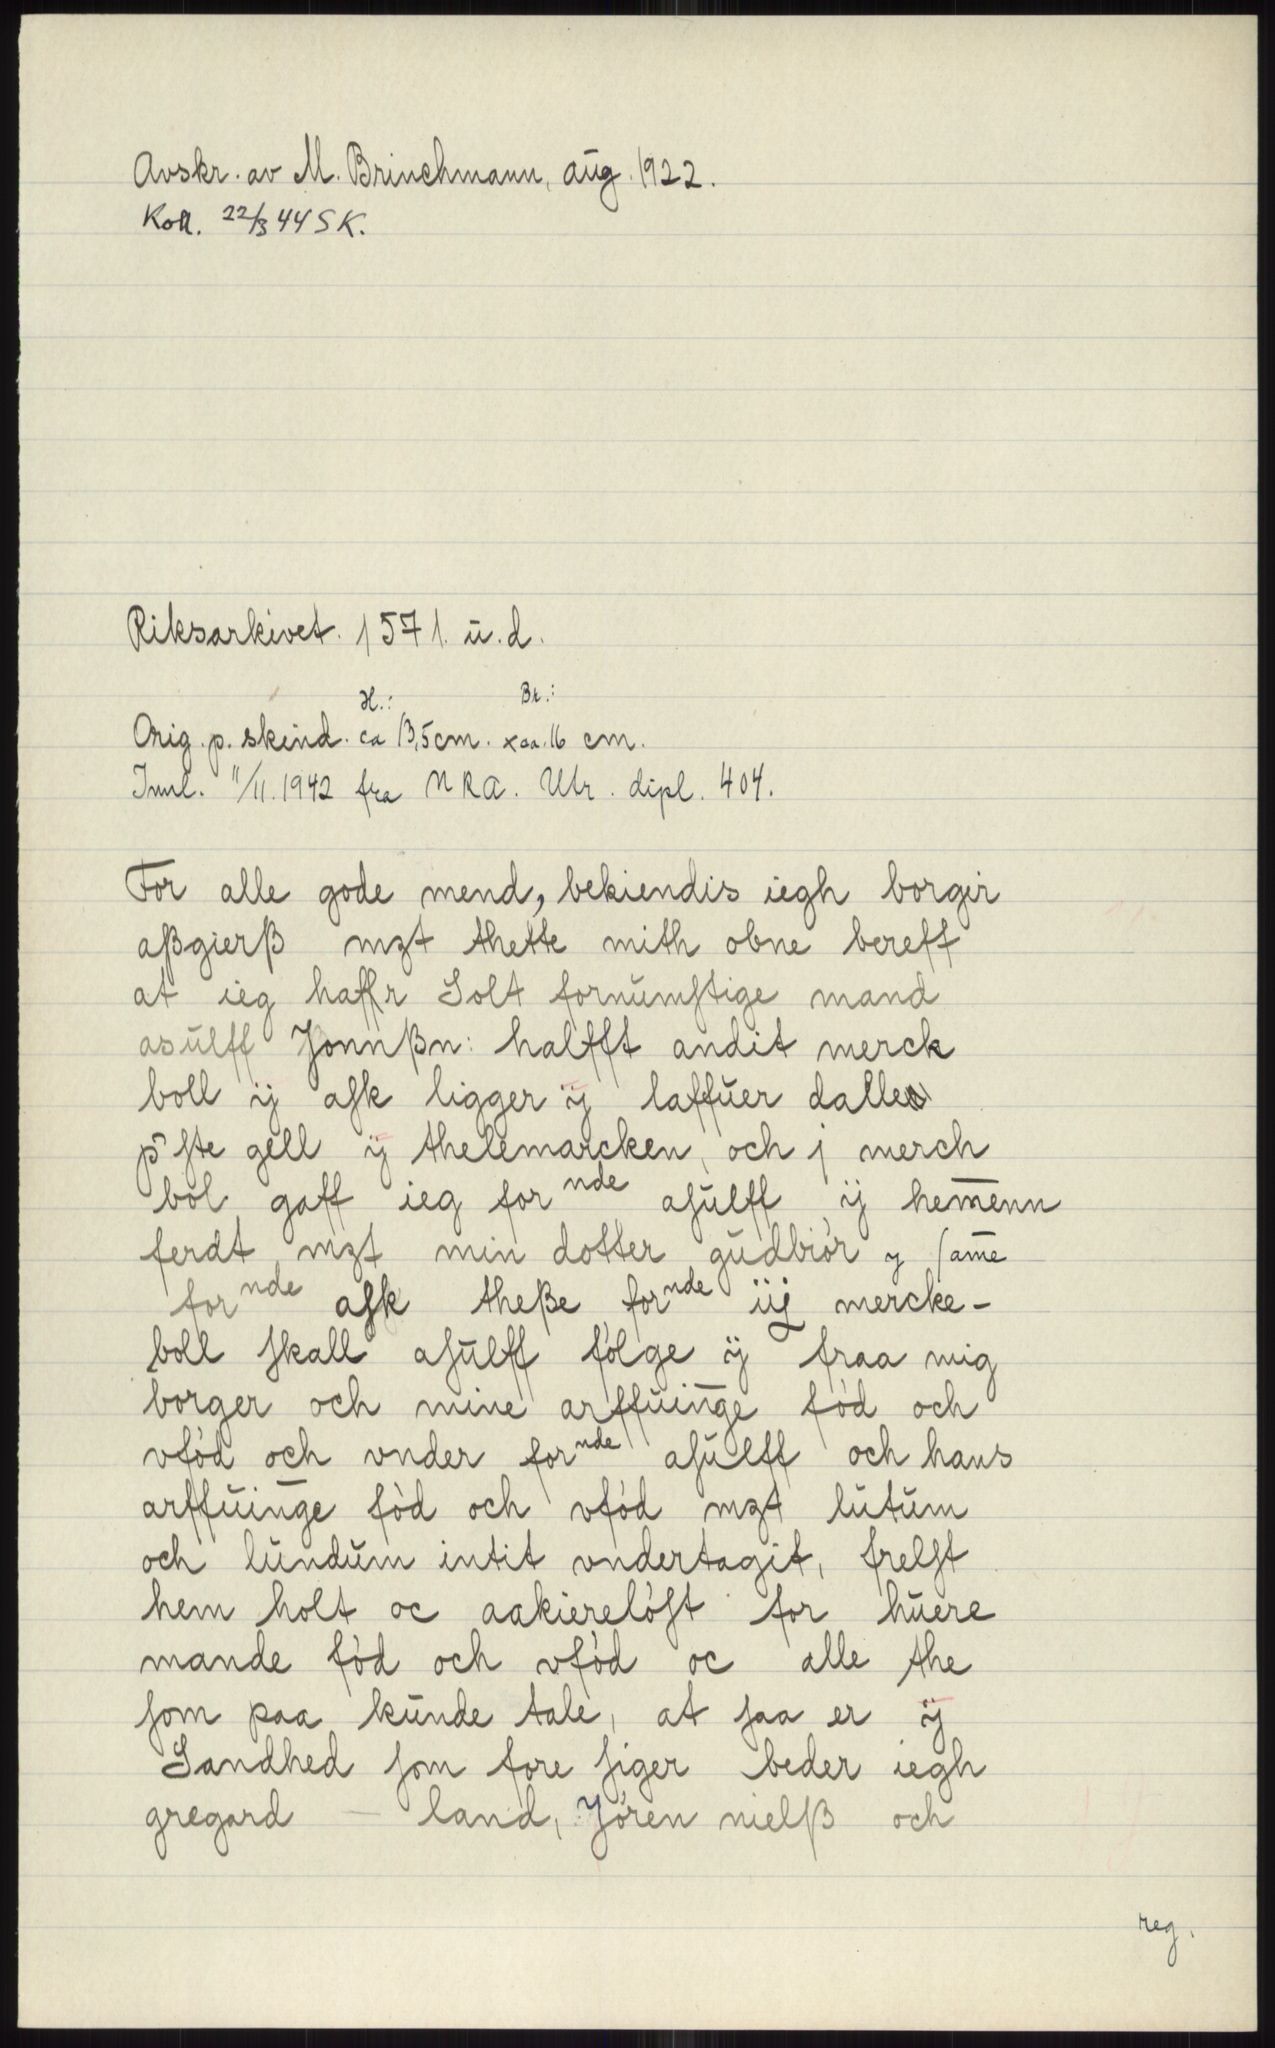 Avskr. av M. Brinchmann, aug. 1922.
Koll. 22/3 44 SK.
Riksarkivet. 1571. u. d.
H.: Br.:
Orig. p. skind. ca 13,5 cm. x ca. 16 cm.
Innl. 11/11. 1942 fra NRA. Utr. dipl. 404.
For alle gode mend, bekiendis iegh borgir
aßgierß mzt thette mith obne bereff
at ieg haffr Solt fornumſtige mand
asulff Jonnßn: halfft andit merck
boll ij aſk ligger ÿ laffuer dalle
p̄ ſte gell ÿ thelemarcken, och j merch
bol gaff ieg for nde aſulff ÿ hem̅enn
ferdt mzt min dotter gudbiór y ſam̅e
for nde aſk theße for nde iij mercke-
boll ſkall aſulff fólge ÿ fraa mig
borger och mine arffuin̅ge fód och
vfód och vnder for nde aſulff och hans
arffuin̅ge fód och vfód mzt lutum
och lundum intit vndertagit, frelſt
hem holt oc aakiereló́ſt for huere
mande fód och vfód oc alle the
ſom paa kunde tale, at ſaa er ÿ
Sandhed ſom fore ſiger beder iegh
gregard — land, Jóren nielß och
reg.